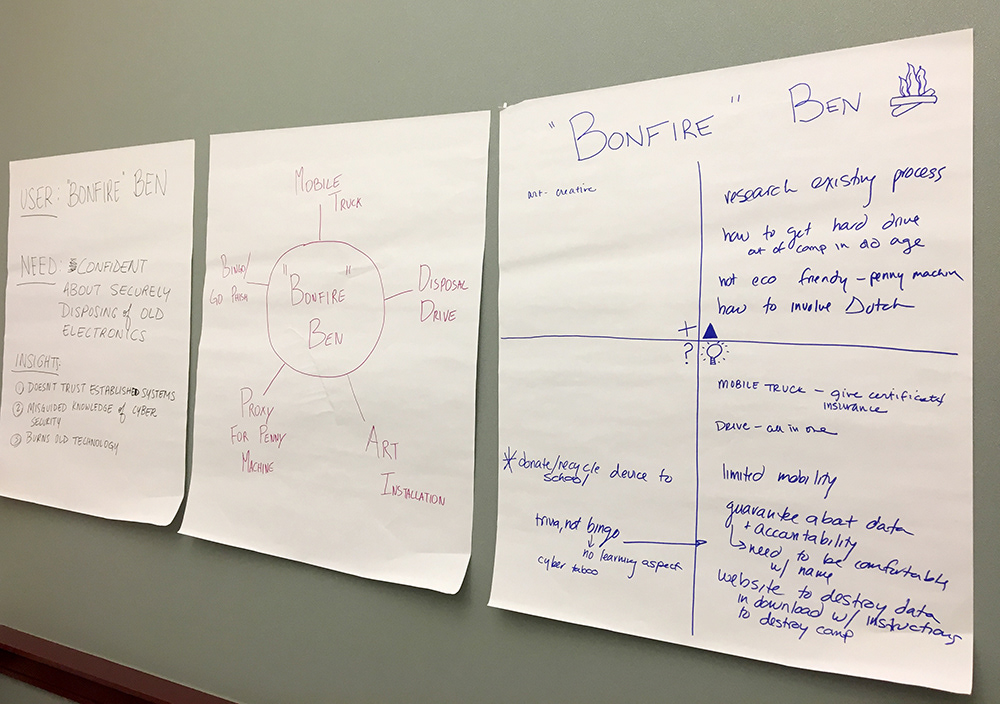 USER: "BONFIRE" BEN
NEED: CONFIDENT
ABOUT SECURELY
DISPOSING of OLD
ELECTRONICS
INSIGHTS:
① DOESN'T TRUST ESTABLISHED SYSTEMS
② MISGUIDED KNOWLEDGE of CYBER
SECURITY
③ BURNS OLD TECHNOLOGY
MOBILE
TRUCK
BINGO/
GO PHISH
"BONFIRE"
BEN
DISPOSAL
DRIVE
PROXY
FOR PENNY
MACHINE
ART
INSTALLATION
"BONFIRE" BEN
art - creative
research existing process
how to get hard drive
out of comp in age
not eco friendy - penny machin
how to involve Dutch
+
?
MOBILE TRUCK - give certificates/
insurance
DRIVE - all in one
limited mobility
guarantee abat data
+ accantability
need to be comfortable
w/ name
website to destroy data
in download w/ instructions
to destroy comp
* donate/recycle device to
school
triva, not bingo
no learning aspect
cyber taboo